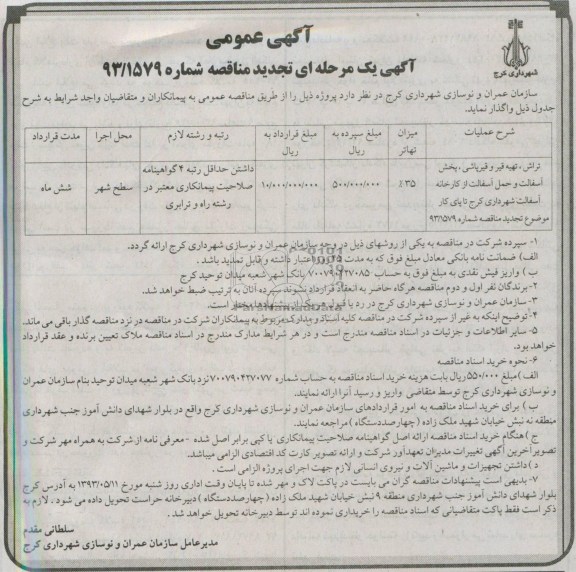 آگهی عمومی
آگهی یک مرحله ای تجدید مناقصه شماره ۹۳/۱۵۷۹
شهرداری کرج
سازمان عمران و نوسازی شهرداری کرج در نظر دارد پروژه ذیل را از طریق مناقصه عمومی به پیمانکاران و متقاضیان واجد شرایط به شرح
جدول ذیل واگذار نماید.
شرح عملیات | میزان تهاتر | مبلغ سپرده به ریال | مبلغ قرارداد به ریال | رتبه و رشته لازم | محل اجرا | مدت قرارداد
تراش ، تهیه قیر و قیرپاشی ، پخش آسفالت و حمل آسفالت از کارخانه آسفالت شهرداری کرج تا پای کار موضوع تجدید مناقصه شماره ۹۳/۱۵۷۹ | ٪۳۵ | ۵۰۰/۰۰۰/۰۰۰ | ۱۰/۰۰۰/۰۰۰/۰۰۰ | داشتن حداقل رتبه ۴ گواهینامه صلاحیت پیمانکاری معتبر در رشته راه و ترابری | سطح شهر | شش ماه
۱- سپرده شرکت در مناقصه به یکی از روشهای ذیل در وجه سازمان عمران و نوسازی شهرداری کرج ارائه گردد.
الف) ضمانت نامه بانکی معادل مبلغ فوق که به مدت روز اعتبار داشته و قابل تمدید باشد .
ب ) واریز فیش نقدی به مبلغ فوق به حساب ۷۰۰۷۹۰۴۲۷۰۸۵ بانک شهر شعبه میدان توحید کرج
۲- برندگان نفر اول و دوم مناقصه هرگاه حاضر به انعقاد قرارداد نشوند سپرده آنان به ترتیب ضبط خواهد شد.
۳- سازمان عمران و نوسازی شهرداری کرج در رد یا قبول هر یک از پیشنهادها مختار است.
۴- توضیح اینکه به غیر از سپرده شرکت در مناقصه کلیه اسناد و مدارک مربوط به پیمانکاران شرکت در مناقصه در نزد مناقصه گذار باقی می ماند.
۵- سایر اطلاعات و جزئیات در اسناد مناقصه مندرج است و در هر شرایط مدارک مندرج در اسناد مناقصه ملاک تعیین برنده و عقد قرارداد
خواهد بود.
۶- نحوه خرید اسناد مناقصه
الف)مبلغ ۵۵۰/۰۰۰ریال بابت هزینه خرید اسناد مناقصه به حساب شماره ۷۰۰۷۹۰۴۲۷۰۷۷نزد بانک شهر شعبه میدان توحید بنام سازمان عمران
و نوسازی شهرداری کرج توسط متقاضی واریز و رسید آنرا ارائه نمایند.
ب ) برای خرید اسناد مناقصه به امور قراردادهای سازمان عمران و نوسازی شهرداری کرج واقع در بلوار شهدای دانش آموز جنب شهرداری
منطقه نه نبش خیابان شهید ملک زاده ( چهارصددستگاه ) مراجعه نمایند.
ج ) هنگام خرید اسناد مناقصه ارائه اصل گواهینامه صلاحیت پیمانکاری یا کپی برابر اصل شده - معرفی نامه از شرکت به همراه مهر شرکت و
تصویر آخرین آگهی تغییرات مدیران تعهدآور شرکت و ارائه تصویر کارت کد اقتصادی الزامی میباشد.
د ) داشتن تجهیزات و ماشین آلات و نیروی انسانی لازم جهت اجرای پروژه الزامی است .
۷- بدیهی است پیشنهادات مناقصه گران می بایست در پاکت لاک و مهر شده تا پایان وقت اداری روز شنبه مورخ ۱۳۹۳/۰۵/۱۱ به آدرس کرج
بلوار شهدای دانش آموز جنب شهرداری منطقه ۹ نبش خیابان شهید ملک زاده ( چهارصددستگاه ) دبیرخانه حراست تحویل داده می شود . لازم به
ذکر است فقط پاکت متقاضیانی که اسناد مناقصه را خریداری نموده اند توسط دبیرخانه تحویل خواهد شد .
سلطانی مقدم
مدیرعامل سازمان عمران و نوسازی شهرداری کرج